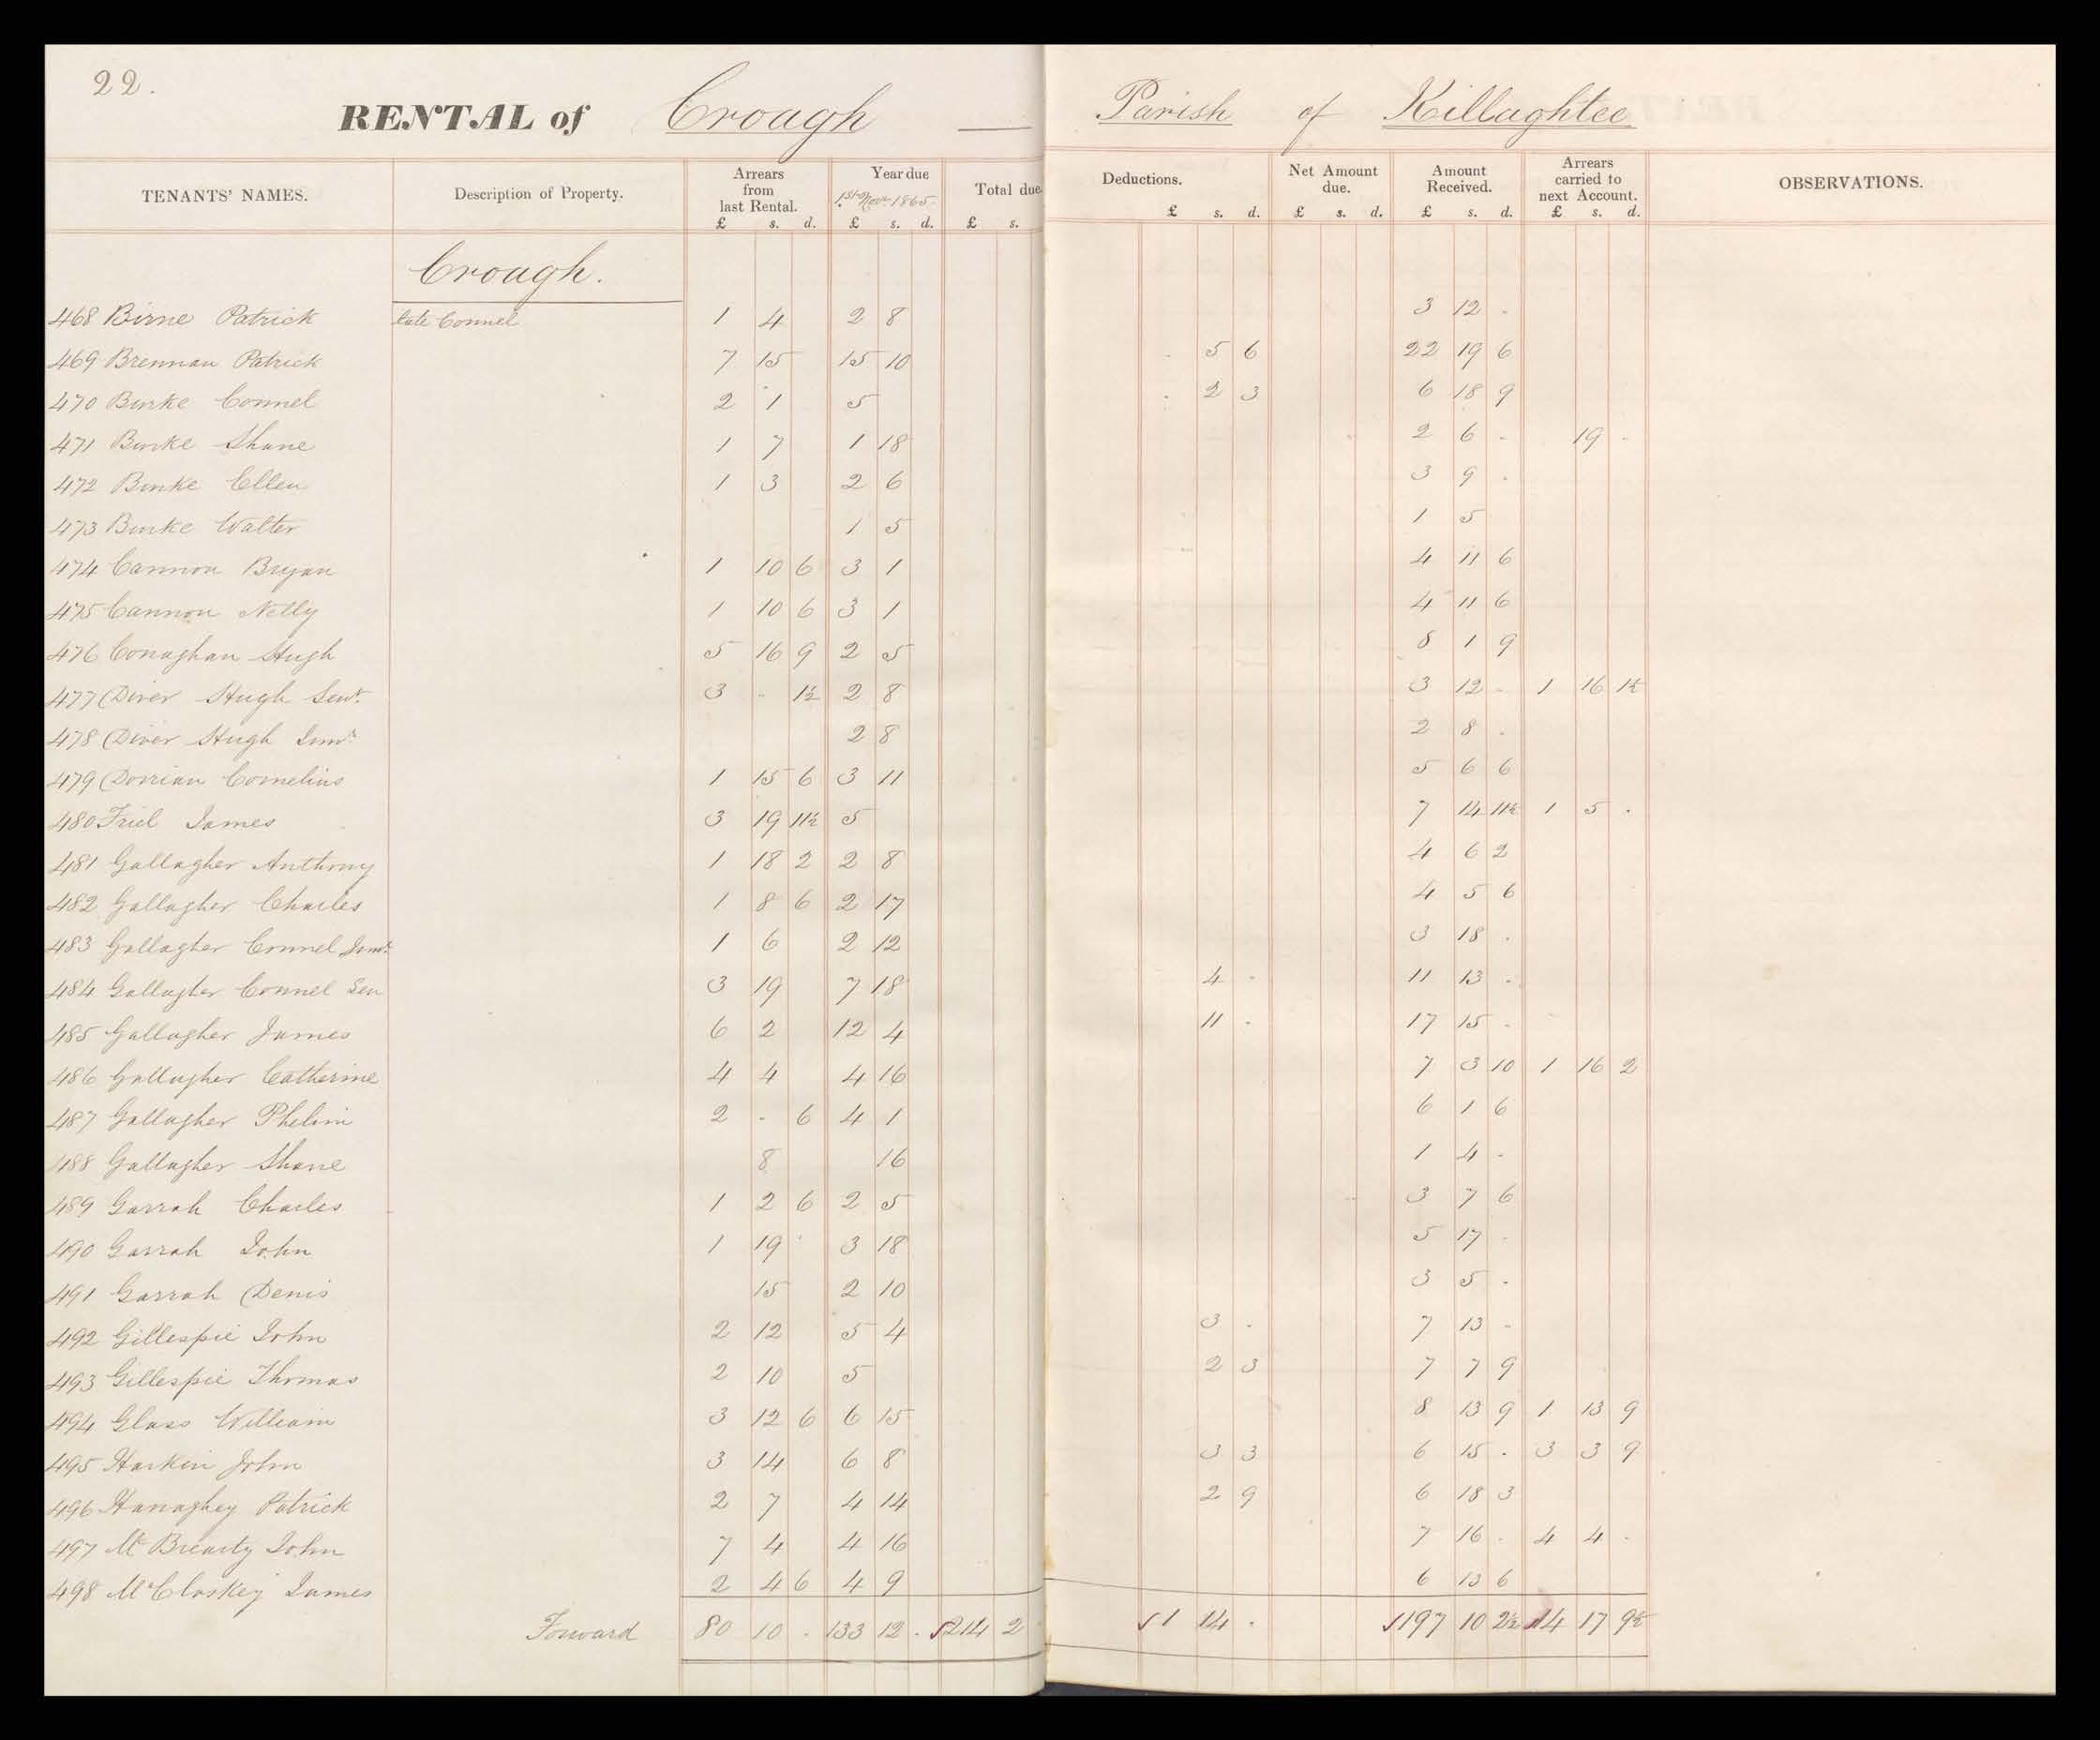 22.
RENTAL of Crough — Parish of Killaghtee
TENANTS' NAMES. Description of Property. Arrears from last Rental. Year due 1st Novr 1865. Total due Deductions. Net Amount due. Amount Received. Arrears carried to next Account. OBSERVATIONS.
£ s. d. £ s. d. £ s. £ s. d. £ s. d. £ s. d. £ s. d.
Crough.
468 Birne Patrick late Connel 1 4 2 8 3 12 .
469 Brennan Patrick 7 15 15 10 . 5 6 22 19 6
470 Burke Connel 2 1 5 . 2 3 6 18 9
471 Burke Shane 1 7 1 18 2 6 . 19 .
472 Burke Ellen 1 3 2 6 3 9 .
473 Burke Walter 1 5 1 5
474 Cannon Bryan 1 10 6 3 1 4 11 6
475 Cannon Nelly 1 10 6 3 1 4 11 6
476 Conaghan Hugh 5 16 9 2 5 8 1 9
477 Diver Hugh Senr. 3 . 1½ 2 8 3 12 . 1 16 1½
478 Diver Hugh Junr. 2 8 2 8 .
479 Dorrian Cornelius 1 15 6 3 11 5 6 6
480 Friel James 3 19 11½ 5 7 14 11½ 1 5 .
481 Gallagher Anthony 1 18 2 2 8 4 6 2
482 Gallagher Charles 1 8 6 2 17 4 5 6
483 Gallagher Connel Junr. 1 6 2 12 3 18 .
484 Gallagher Connel Sen 3 19 7 18 4 . 11 13 .
485 Gallagher James 6 2 12 4 11 . 17 15 .
486 Gallagher Catherine 4 4 4 16 7 3 10 1 16 2
487 Gallagher Phelim 2 . 6 4 1 6 1 6
488 Gallagher Shane 8 16 1 4 .
489 Garrah Charles 1 2 6 2 5 3 7 6
490 Garrah John 1 19 . 3 18 5 17 .
491 Garrah Denis 15 2 10 3 5 .
492 Gillespie John 2 12 5 4 3 . 7 13 .
493 Gillespie Thomas 2 10 5 2 3 7 7 9
494 Glass William 3 12 6 6 15 8 13 9 1 13 9
495 Harkin John 3 14 6 8 3 3 6 15 . 3 3 9
496 Hanaghey Patrick 2 7 4 14 2 9 6 18 3
497 Mc Brearty John 7 4 4 16 7 16 . 4 4 .
498 McCloskey James 2 4 6 4 9 6 13 6
Forward 80 10 . 133 12 . 214 2 1 14 . 197 10 2½ 14 17 9½